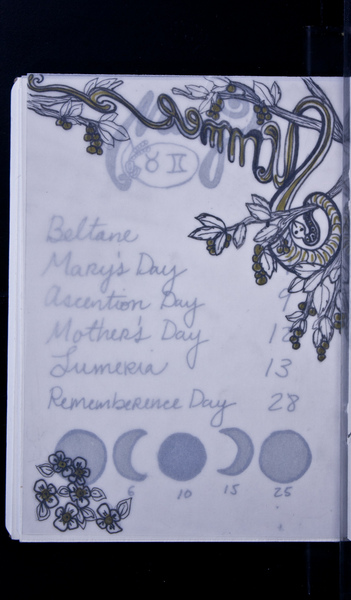 Summer
Beltane
Mary's Day
Ascention Day 9
Mother's Day 12
Lumeria 13
Rememberence Day 28
6 10 15 25